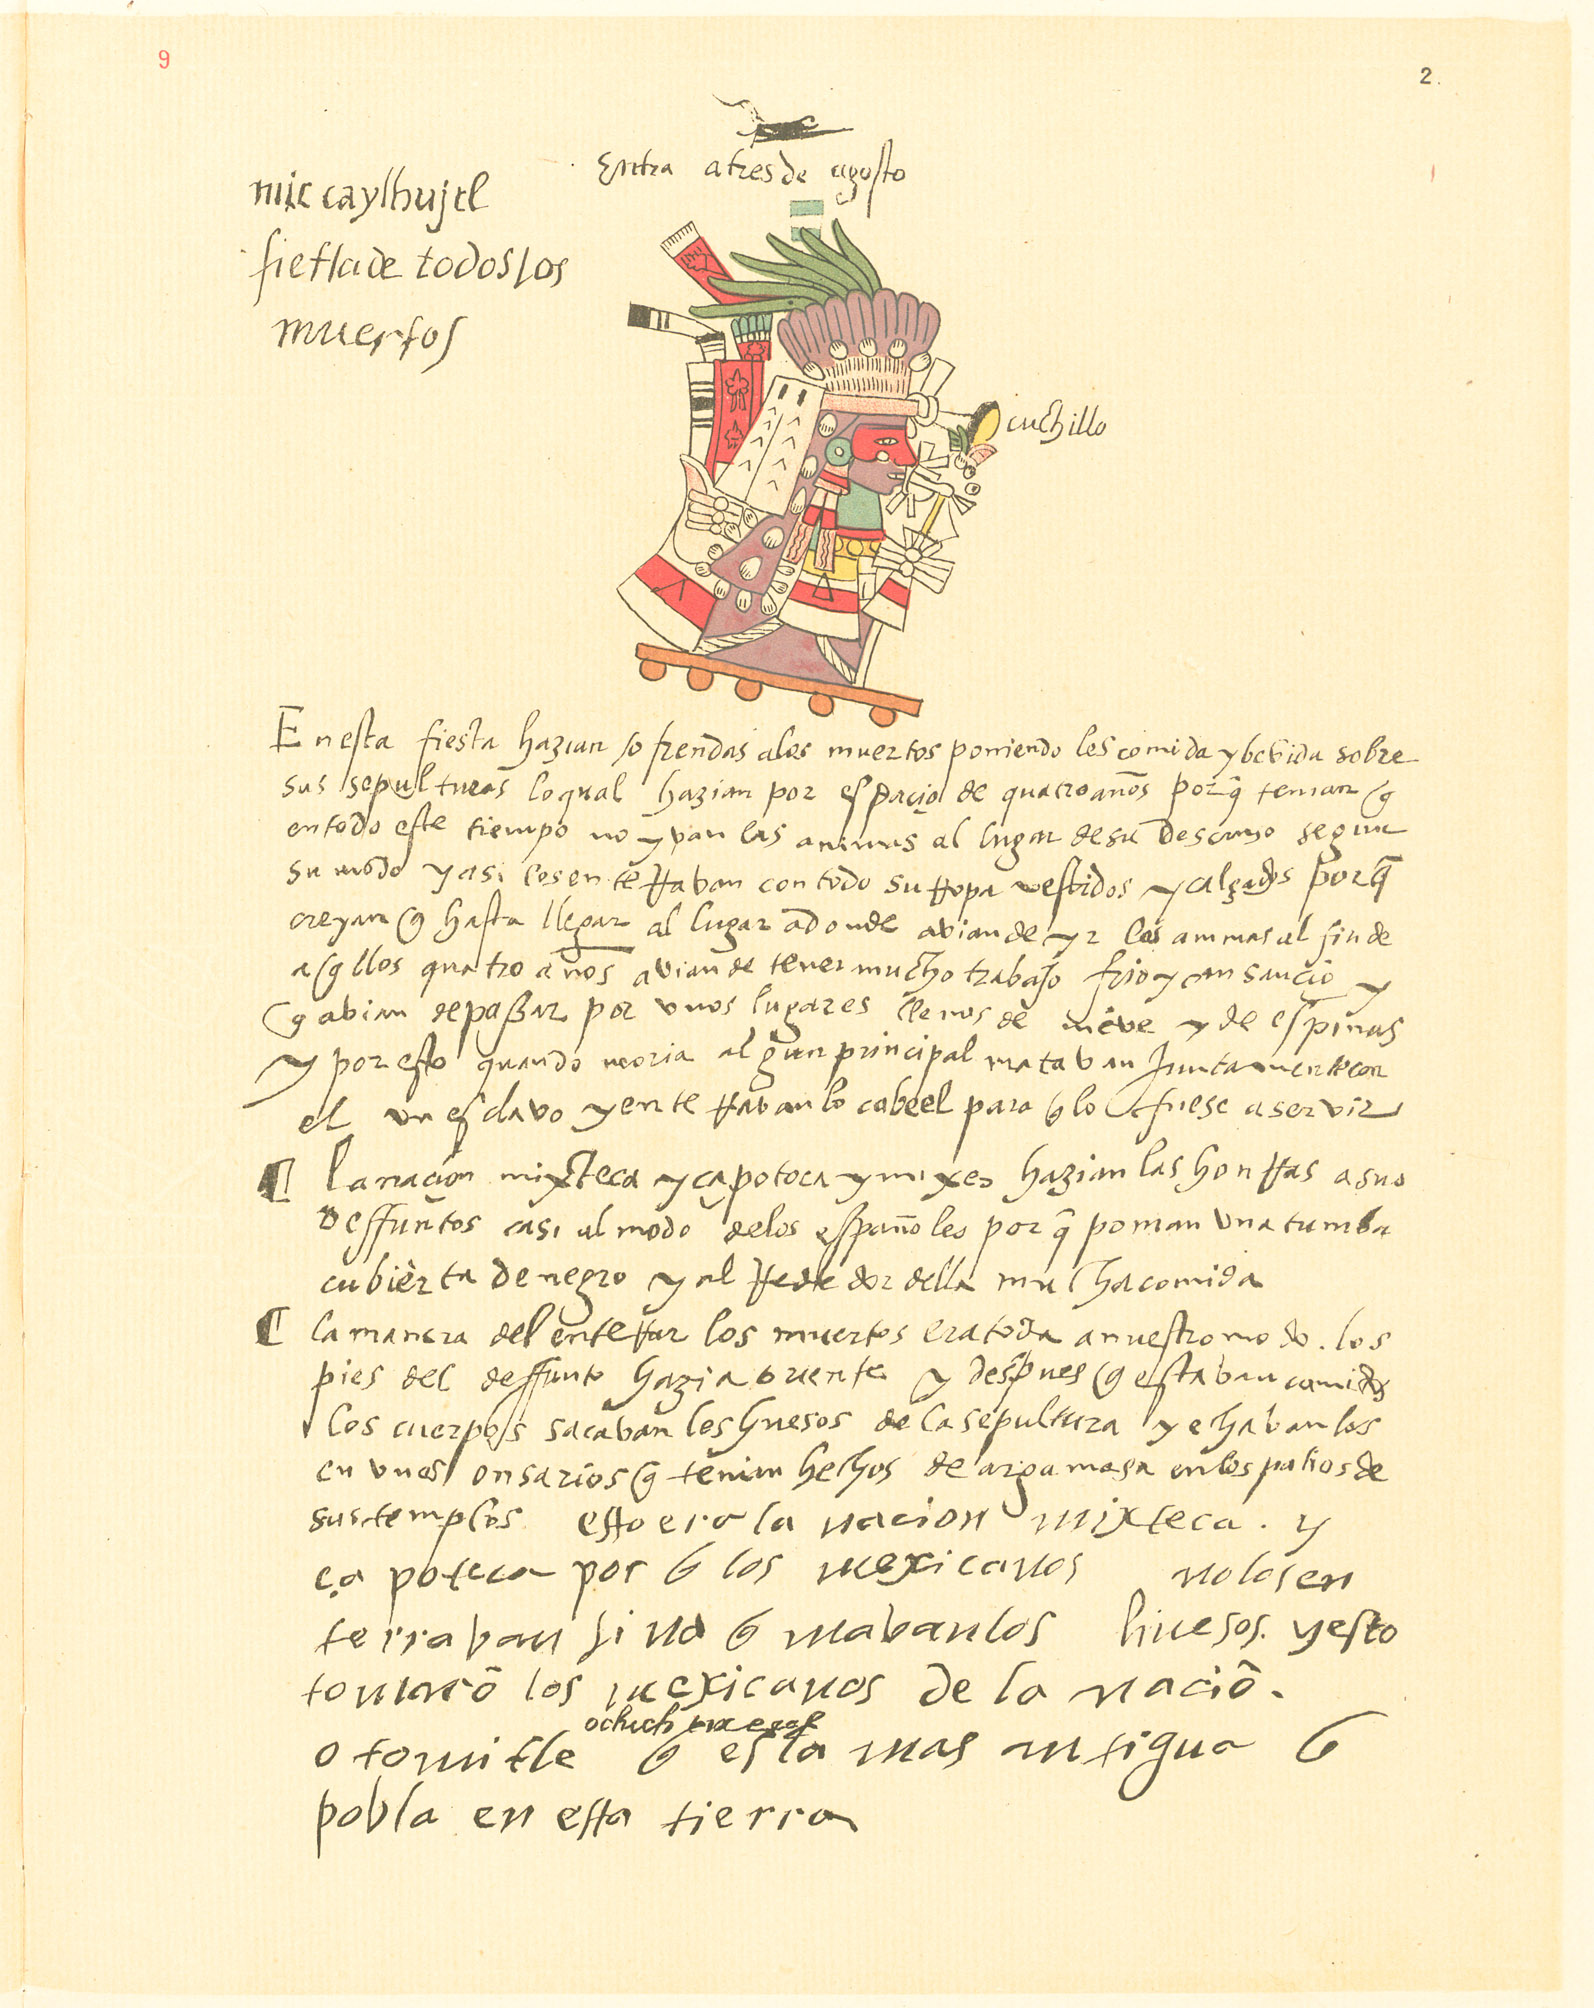 9
2.
Entra a tres de agosto
miccaylhujtl
fiesta de todos los
muertos
cuchillo
En esta fiesta hazian ofrendas a los muertos poniendo les comida y bevida sobre
sus sepulturas lo qual hazian por espacio de quatro años porq̃ tenian q̃
en todo este tiempo no yvan las animas al lugar de su descanso segun
su modo y asi los enterraban con todo su rropa vestidos y calçados porq̃
creyan q̃ hasta llegar al lugar adonde avian de yr las animas al fin de
aq̃llos quatro años avian de tener mucho trabajo frio y cansancio y
q̃ abian de passar por unos lugares llenos de nieve y de espinas
y por esto quando moria algun principal mataban juntamente con
el un esclavo y enterravanlo cabe el para q̃ lo fuese a servir
la nacion mixteca y çapoteca y mixes hazian las honrras a sus
deffuntos casi al modo de los españoles por q̃ ponian una tumba
cubierta de negro y al rrededor della mucha comida
la manera del enterrar los muertos era toda a nuestro modo. los
pies del deffunto hazia oriente y despues q̃ estaban comidos
los cuerpos sacaban los huesos de la sepultura y echabanlos
en unos onsarios q̃ tenian hechos de argamasa en los patios de
sus templos esto era la nacion mixteca. y
çapoteca por q̃ los mexicanos no los en
terraban sino q̃ mabanlos huesos. y esto
tomarõ los mexicanos de la naciõ.
otomitle q̃ es la mas antigua q̃
pobla en esta tierra